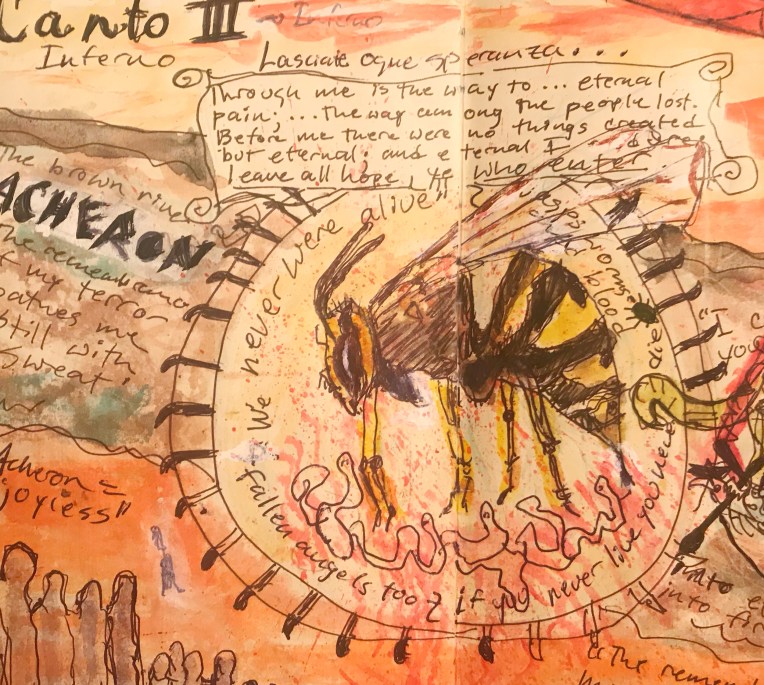 Canto III
Inferno
Inferno
Lasciate ogne speranza...
Through me is the way to ... eternal
pain; ... the way among the people lost.
Before me there were no things created
but eternal; and eternal I
leave all hope, ye who enter.
The brown rive
ACHERON
The remembrance
f my terror
bathes me
still with
sweat.
Acheron =
joyless"
"We never were alive"
wasps worms
blood
Fallen angels too & if you never live you
"I c
you
into
into fir
"The remem